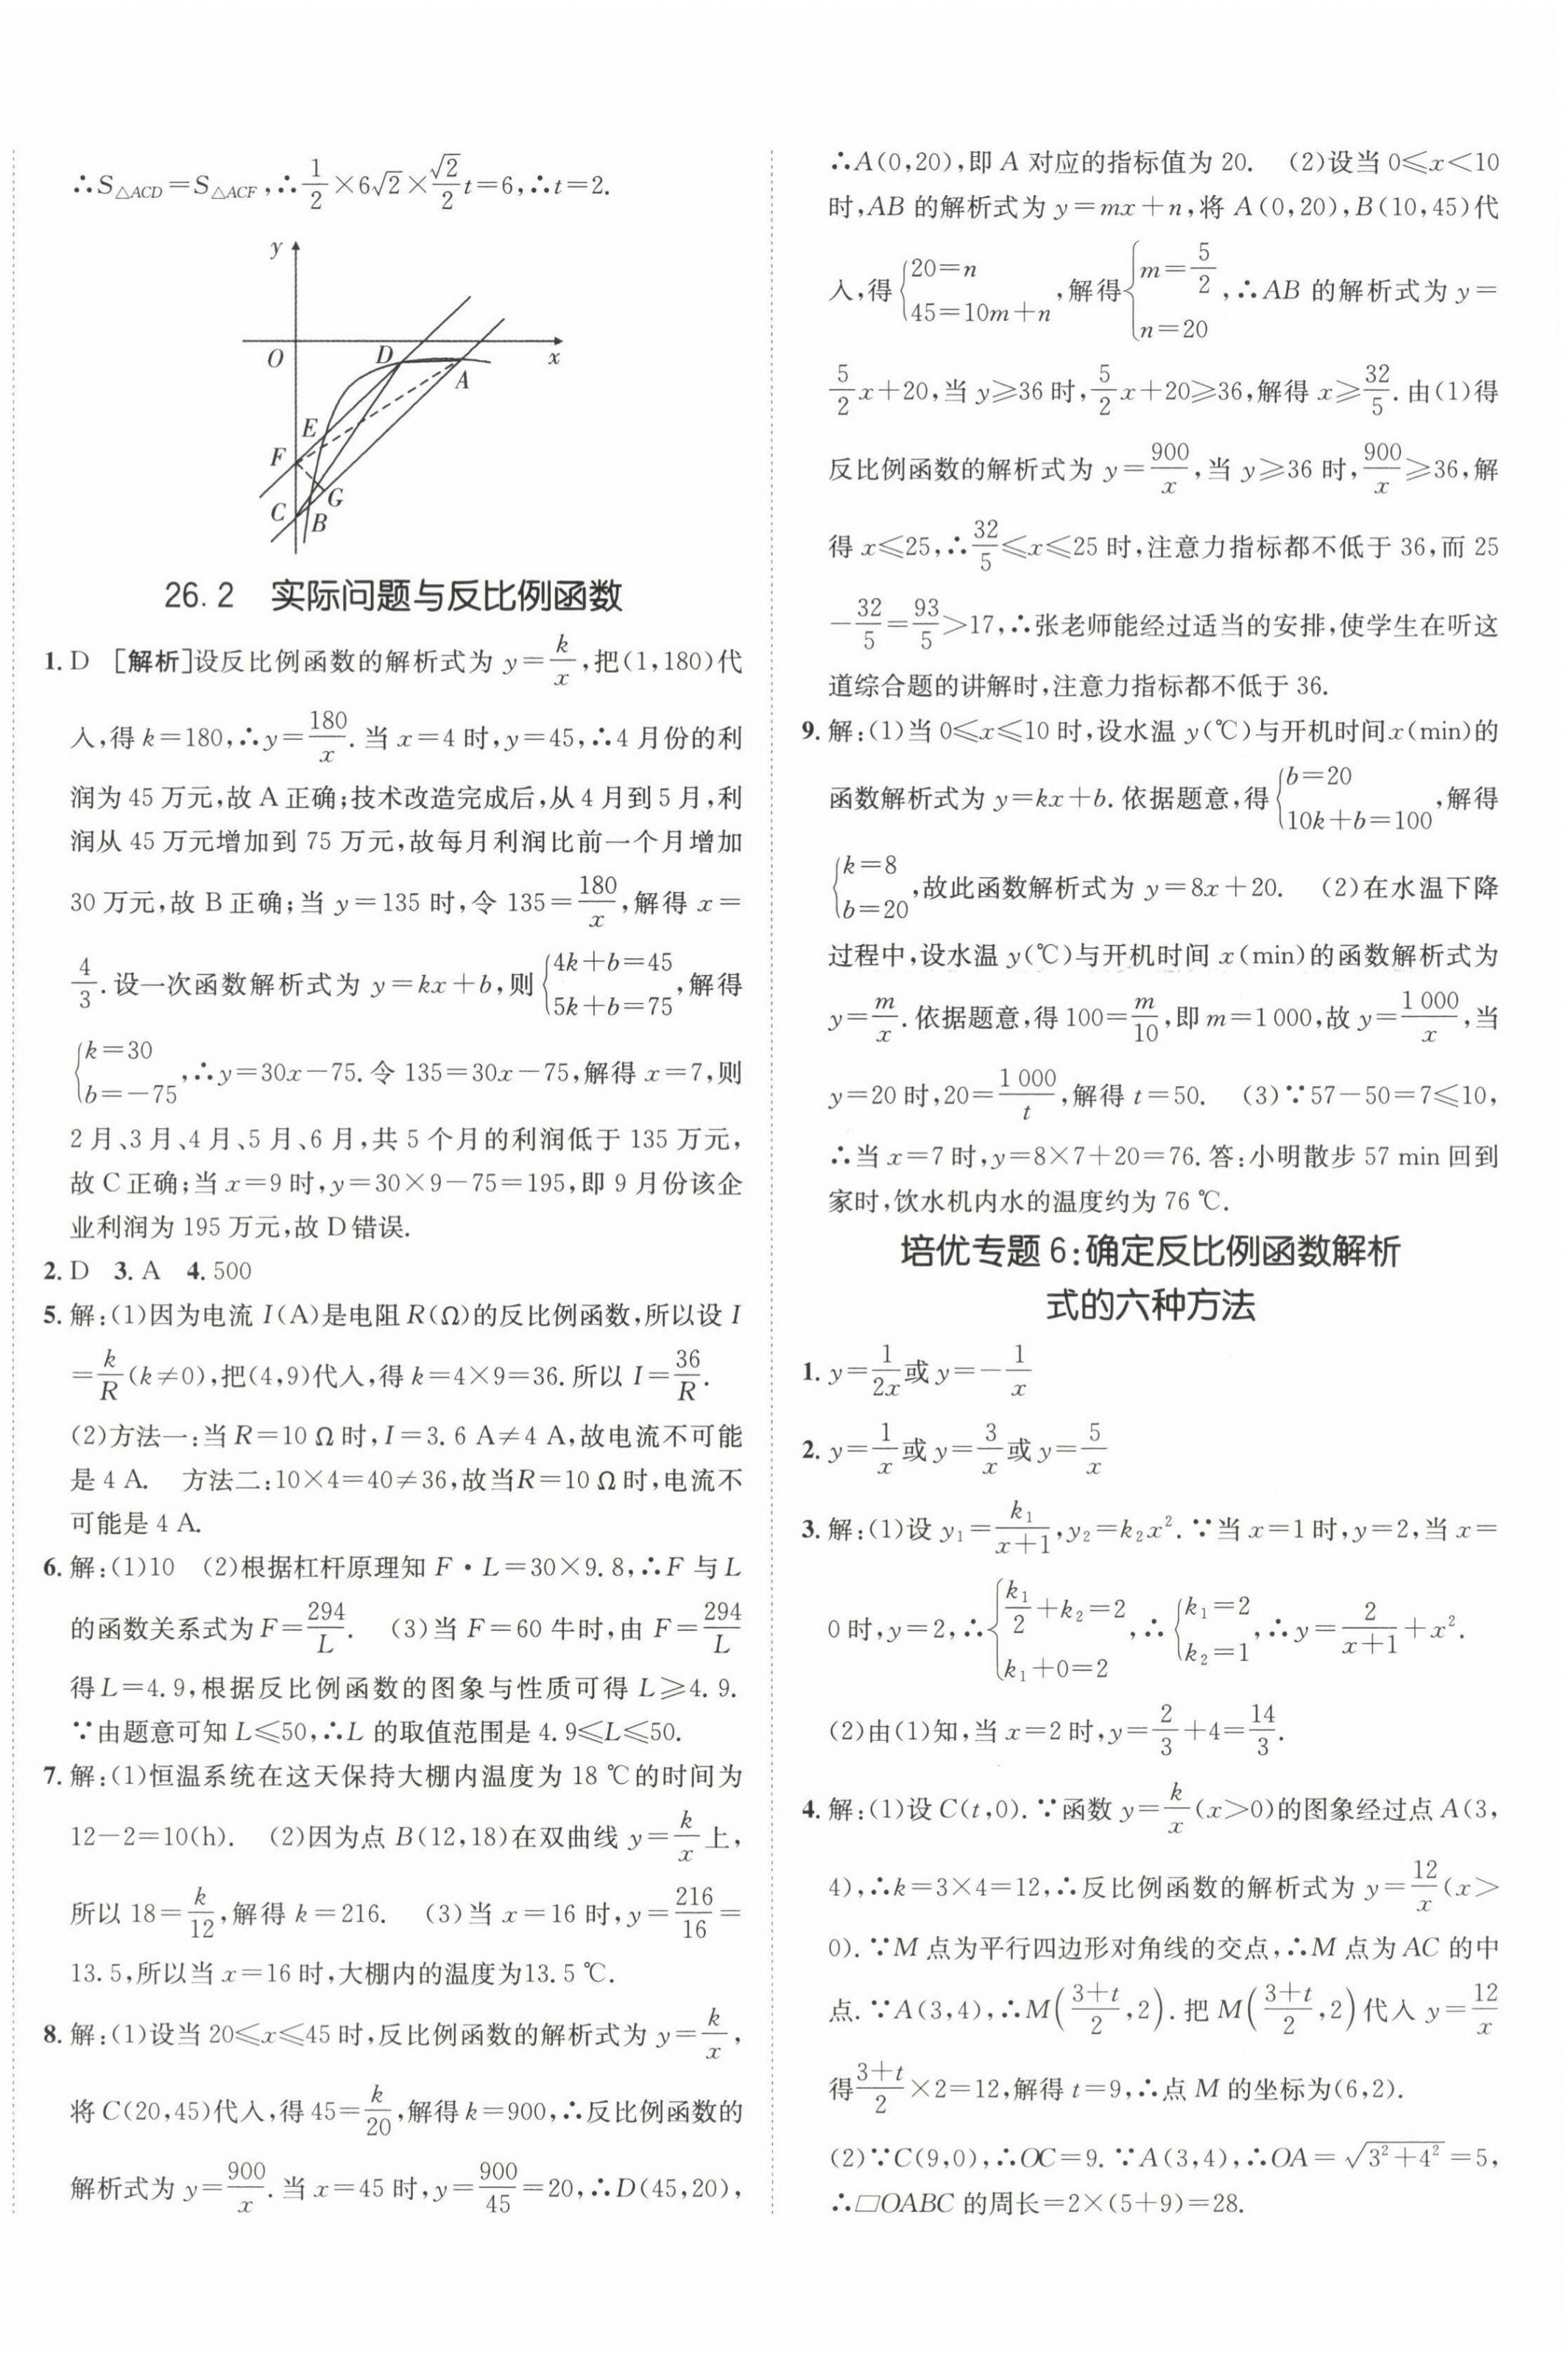 ∴S△ACD=S△ACF,∴1/2×6√2×√2/2 t=6,∴t=2.
y
O
D
x
A
E
F
G
C
B
26.2 实际问题与反比例函数
1. D [解析]设反比例函数的解析式为 y=k/x,把(1,180)代
入,得 k=180,∴y=180/x. 当 x=4 时,y=45,∴4 月份的利
润为 45 万元,故 A 正确;技术改造完成后,从 4 月到 5 月,利
润从 45 万元增加到 75 万元,故每月利润比前一个月增加
30 万元,故 B 正确;当 y=135 时,令 135=180/x,解得 x=
4/3. 设一次函数解析式为 y=kx+b,则{4k+b=45 5k+b=75,解得
{k=30 b=-75,∴y=30x-75. 令 135=30x-75,解得 x=7,则
2 月、3 月、4 月、5 月、6 月,共 5 个月的利润低于 135 万元,
故 C 正确;当 x=9 时,y=30×9-75=195,即 9 月份该企
业利润为 195 万元,故 D 错误.
2. D 3. A 4. 500
5. 解:(1)因为电流 I(A)是电阻 R(Ω)的反比例函数,所以设 I
=k/R(k≠0),把(4,9)代入,得 k=4×9=36. 所以 I=36/R.
(2)方法一:当 R=10 Ω 时,I=3.6 A≠4 A,故电流不可能
是 4 A. 方法二:10×4=40≠36,故当R=10 Ω 时,电流不
可能是 4 A.
6. 解:(1)10 (2)根据杠杆原理知 F·L=30×9.8,∴F 与 L
的函数关系式为 F=294/L. (3)当 F=60 牛时,由 F=294/L
得 L=4.9,根据反比例函数的图象与性质可得 L≥4.9.
∵由题意可知 L≤50,∴L 的取值范围是 4.9≤L≤50.
7. 解:(1)恒温系统在这天保持大棚内温度为 18 ℃的时间为
12-2=10(h). (2)因为点 B(12,18)在双曲线 y=k/x上,
所以 18=k/12,解得 k=216. (3)当 x=16 时,y=216/16=
13.5,所以当 x=16 时,大棚内的温度为13.5 ℃.
8. 解:(1)设当 20≤x≤45 时,反比例函数的解析式为 y=k/x,
将 C(20,45)代入,得 45=k/20,解得 k=900,∴反比例函数的
解析式为 y=900/x. 当 x=45 时,y=900/45=20,∴D(45,20),
∴A(0,20),即 A 对应的指标值为 20. (2)设当 0≤x<10
时,AB 的解析式为 y=mx+n,将 A(0,20),B(10,45)代
入,得{20=n 45=10m+n,解得{m=5/2 n=20,∴AB 的解析式为 y=
5/2 x+20,当 y≥36 时,5/2 x+20≥36,解得 x≥32/5. 由(1)得
反比例函数的解析式为 y=900/x,当 y≥36 时,900/x≥36,解
得 x≤25,∴32/5≤x≤25 时,注意力指标都不低于 36,而 25
-32/5=93/5>17,∴张老师能经过适当的安排,使学生在听这
道综合题的讲解时,注意力指标都不低于 36.
9. 解:(1)当 0≤x≤10 时,设水温 y(℃)与开机时间x(min)的
函数解析式为 y=kx+b. 依据题意,得{b=20 10k+b=100,解得
{k=8 b=20,故此函数解析式为 y=8x+20. (2)在水温下降
过程中,设水温 y(℃)与开机时间 x(min)的函数解析式为
y=m/x. 依据题意,得 100=m/10,即 m=1 000,故 y=1 000/x,当
y=20 时,20=1 000/t,解得 t=50. (3)∵57-50=7≤10,
∴当 x=7 时,y=8×7+20=76. 答:小明散步 57 min 回到
家时,饮水机内水的温度约为 76 ℃.
培优专题 6:确定反比例函数解析
式的六种方法
1. y=1/2x或 y=-1/x
2. y=1/x或 y=3/x或 y=5/x
3. 解:(1)设 y₁=k₁/x+1,y₂=k₂x². ∵当 x=1 时,y=2,当 x=
0 时,y=2,∴{k₁/2+k₂=2 k₁+0=2,∴{k₁=2 k₂=1,∴y=2/x+1+x².
(2)由(1)知,当 x=2 时,y=2/3+4=14/3.
4. 解:(1)设 C(t,0). ∵函数 y=k/x(x>0)的图象经过点 A(3,
4),∴k=3×4=12,∴反比例函数的解析式为 y=12/x(x>
0). ∵M 点为平行四边形对角线的交点,∴M 点为 AC 的中
点. ∵A(3,4),∴M(3+t/2,2). 把 M(3+t/2,2)代入 y=12/x
得3+t/2×2=12,解得 t=9,∴点 M 的坐标为(6,2).
(2)∵C(9,0),∴OC=9. ∵A(3,4),∴OA=√3²+4²=5,
∴▱OABC 的周长=2×(5+9)=28.